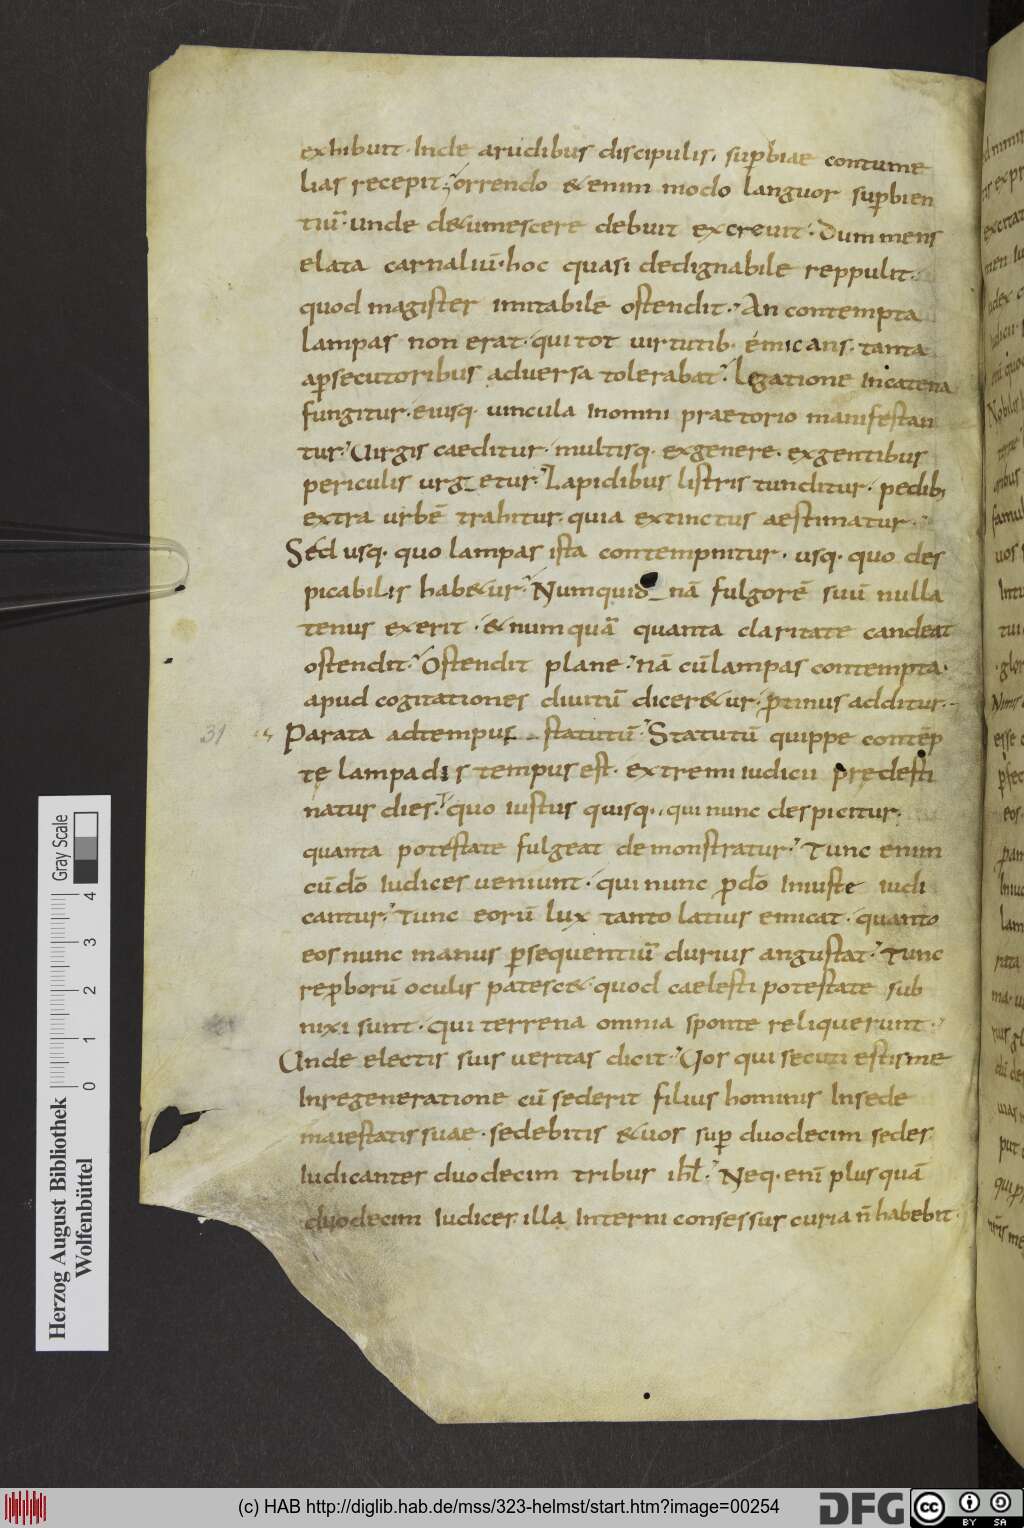 exhibuit. Inde arudibus discipulis, suꝑbiae contume
lias recepit; orrendo &enim modo languor suꝑbien
tiū. unde de&umescere debuit excreuit. Dum mens
elata carnaliū. hoc quasi dedignabile reppulit.
quod magister imitabile ostendit. An contempta
lampas non erat. qui tot uirtutib. emicans. tanta
aꝑsecutoribus aduersa tolerabat. Legatione incatena
fungitur. eiusq. uincula inomni praetorio manifestan
tur. Uirgis caeditur. multisq. exgenere. exgentibus
periculis urg_etur. Lapidibus listris tunditur. pedib;
extra urbē trahitur. quia extinctus aestimatur.
Sed usq. quo lampas ista contempnitur. usq. quo des
picabilis habe&ur. Numquid_nā fulgorē suū nulla
tenus exerit. &numquā quanta claritate candeat
ostendit. Ostendit plane. nā cū lampas contempta.
apud cogitationes diuitū dicer&ur. ꝓtinus additur.
31 Parata adtempus_statutū. Statutū quippe contēp
tę lampadis tempus est. extremi iudicii prędesti
natur dies. quo iustus quisq. qui nunc despicitur.
quanta potestate fulgeat demonstratur. Tunc enim
cū dō iudices ueniunt. qui nunc ꝓdō iniuste iudi
cantur. Tunc eorū lux tanto latius emicat. quanto
eos nunc manus ꝑsequentiū durius angustat. Tunc
reꝓborū oculis patesc&. quod caelesti potestate sub
nixi sunt. qui terrena omnia sponte reliquerunt.
Unde electis suis ueritas dicit. Uos qui secuti estis me
Inregeneratione cū sederit filius hominis Insede
maiestatis suae. sedebitis &uos suꝑ duodecim sedes
Iudicantes duodecim tribus ihl̄. Neq. enī plus quā
duodecim Iudices illa Interni consessus curia n̄ habebit.
Gray Scale
0 1 2 3 4
Herzog August Bibliothek
Wolfenbüttel
(c) HAB http://diglib.hab.de/mss/323-helmst/start.htm?image=00254
DFG
cc BY SA